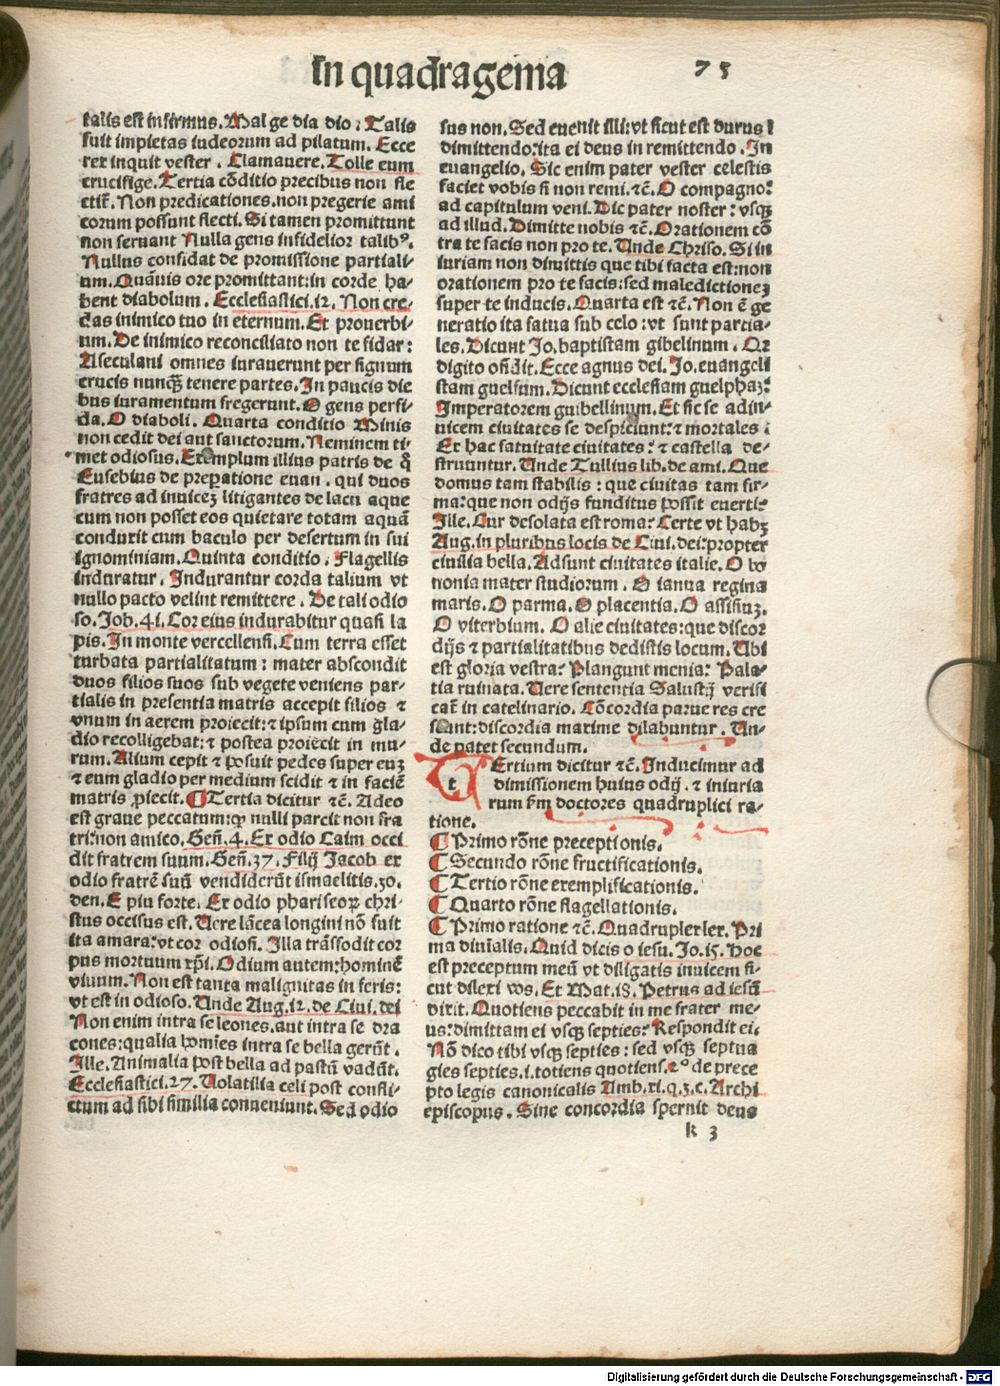 In quadragema
75
talis est infirmus. Mal ge dia dio: Talis
fuit impietas iudeorum ad pilatum. Ecce
rex inquit vester. Clamauere. Tolle eum
crucifige. Tertia cōditio precibus non fle
ctiť. Non predicationes. non pregerie ami
corum possunt flecti. Si tamen promittunt
non seruant Nulla gens infidelior talibꝰ.
Nullus confidat de promissione partiali-
um. Quāuis ore promittant: in corde ha-
bent diabolum. Ecclesiastici. 12. Non cre-
das inimico tuo in eternum. Et prouerbi-
um. De inimico reconciliato non te fidar:
Aseculani omnes iurauerunt per signum
crucis nunqȝ tenere partes. In paucis die
bus iuramentum fregerunt. O gens perfi-
da. O diaboli. Quarta conditio Minis
non cedit dei aut sanctorum. Neminem ti-
met odiosus. Exemplum illius patris de q̄
Eusebius de preparatione euan. qui duos
fratres ad inuiceȝ litigantes de lacu aque
cum non posset eos quietare totam aquā
conduxit cum baculo per desertum in sui
ignominiam. Quinta conditio. Flagellis
induratur. Indurantur corda talium vt
nullo pacto velint remittere. De tali odio
so. Job. 41. Cor eius indurabitur quasi la
pis. In monte vercellensi. Cum terra esset
turbata partialitatum: mater abscondit
duos filios suos sub vegete veniens par-
tialis in presentia matris accepit filios ⁊
vnum in aerem proiecit: ⁊ ipsum cum gla-
dio recolligebat: ⁊ postea proiecit in mu-
rum. Alium cepit ⁊ posuit pedes super euȝ
⁊ eum gladio per medium scidit ⁊ in faciē
matris ꝓiecit. ¶ Tertia dicitur ⁊c̄. Adeo
est graue peccatum: ꝙ nulli parcit non fra
tri: non amico. Geñ. 4. Ex odio Caim occi
dit fratrem suum. Geñ. 37. Filij Jacob ex
odio fratrē suū vendiderūt ismaelitis. 30.
den. E piu forte. Ex odio phariseoꝝ chri-
stus occisus est. Uere lācea longini nō fuit
ita amara: vt cor odiosi. Illa trāsfodit cor
pus mortuum xp̄i. Odium autem: hominē
viuum. Non est tanta malignitas in feris:
vt est in odioso. Unde Aug. 12. de Ciui. dei
Non enim intra se leones. aut intra se dra
cones: qualia homīes intra se bella gerūt.
Ille. Animalia post bella ad pastū vadūt.
Ecclesiastici. 27. Uolatilia celi post confli-
ctum ad sibi similia conueniunt. Sed odio
sus non. Sed euenit illi: vt sicut est durus ī
dimittendo: ita ei deus in remittendo. In
euangelio. Sic enim pater vester celestis
faciet vobis si non remi. ⁊c̄. O compagno:
ad capitulum veni. Dic pater noster: vsqȝ
ad illud. Dimitte nobis ⁊c̄. Orationem cō
tra te facis non pro te. Unde Chriso. Si in
iuriam non dimittis que tibi facta est: non
orationem pro te facis: sed maledictioneȝ
super te inducis. Quarta est ⁊c̄. Non ē ge
neratio ita fatua sub celo: vt sunt partia-
les. Dicunt Jo. baptistam gibelinum. Qȝ
digito oñdit. Ecce agnus dei. Jo. euangeli
stam guelfum. Dicunt ecclesiam guelphaȝ:
Imperatorem guibellinum. Et sic se adin-
uicem ciuitates se despiciunt: ⁊ mortales.
Ex hac fatuitate ciuitates: ⁊ castella de-
struuntur. Unde Tullius lib. de ami. Que
domus tam stabilis: que ciuitas tam fir-
ma: que non odijs funditus possit euerti:
Ille. Cur desolata est roma: Certe vt habȝ
Aug. in pluribus locis de Ciui. dei: propter
ciuilia bella. Adsunt ciuitates italie. O bo
nonia mater studiorum. O ianua regina
maris. O parma. O placentia. O assisiuȝ.
O viterbium. O alie ciuitates: que discor
dijs ⁊ partialitatibus dedistis locum. Ubi
est gloria vestra: Plangunt menia: Pala-
tia ruinata. Uere sententia Salustij verifi
cať in catelinario. Cōcordia parue res cre
scunt: discordia maxime dilabuntur. Un-
de patet secundum.
t Ertium dicitur ⁊c̄. Inducimur ad
dimissionem huius odij. ⁊ iniuria
rum sꝫm doctores quadruplici ra-
tione.
¶ Primo rōne preceptionis.
¶ Secundo rōne fructificationis.
¶ Tertio rōne exemplificationis.
¶ Quarto rōne flagellationis.
¶ Primo ratione ⁊c̄. Quadruplex lex. Pri
ma diuialis. Quid dicis o iesu. Jo. 15. Hoc
est preceptum meū vt diligatis inuicem si-
cut dilexi vos. Et Mat. 18. Petrus ad iesū
dixit. Quotiens peccabit in me frater me-
us: dimittam ei vsqȝ septies: Respondit ei.
Nō dico tibi vsqȝ septies: sed vsqȝ septua
gies septies. i. totiens quotiens. 2° de prece
pto legis canonicalis Amb. xi. q. 3. c. Archi
episcopus. Sine concordia spernit deus
k 3
Digitalisierung gefördert durch die Deutsche Forschungsgemeinschaft - DFG